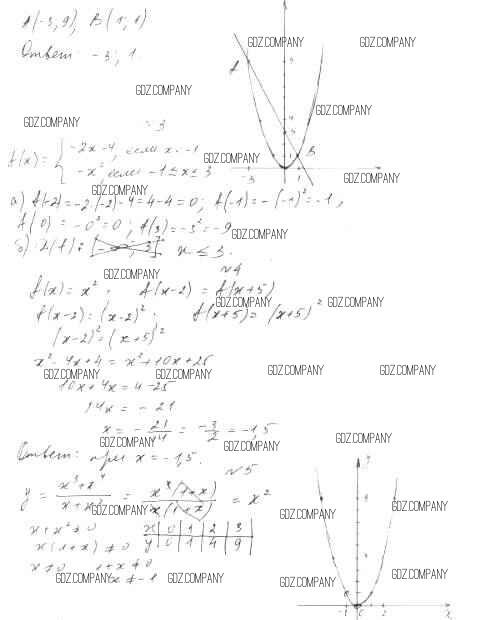 A(-3; 9), B(1; 1)
Ответ: -3; 1.
GDZ.COMPANY
GDZ.COMPANY
GDZ.COMPANY
GDZ.COMPANY
GDZ.COMPANY
A
B
9
4
3
1
-3
1
3
f(x) = { -2x-4, если x<-1
-x², если -1≤x≤3
GDZ.COMPANY
GDZ.COMPANY
а) f(-2)=-2·(-2)-4=4-4=0; f(-1)=-(-1)²=-1,
f(0)=-0²=0; f(3)=-3²=-9
GDZ.COMPANY
б) D(f): x ≤ 3.
GDZ.COMPANY
№4
f(x)=x²; f(x-2)=f(x+5)
GDZ.COMPANY
GDZ.COMPANY
f(x-2)=(x-2)²; f(x+5)=(x+5)²
(x-2)²=(x+5)²
x²-4x+4=x²+10x+25
GDZ.COMPANY
GDZ.COMPANY
GDZ.COMPANY
GDZ.COMPANY
10x+4x=4-25
14x=-21
x=-21/14=-3/2=-1,5
GDZ.COMPANY
GDZ.COMPANY
GDZ.COMPANY
Ответ: при x=-1,5.
№5
y = (x³+x⁴)/(x+x²) = x³(1+x)/x(1+x) = x²
GDZ.COMPANY
GDZ.COMPANY
GDZ.COMPANY
x+x²≠0
x(1+x)≠0
x≠0 1+x≠0
x≠-1
x 0 1 2 3
y 0 1 4 9
GDZ.COMPANY
GDZ.COMPANY
GDZ.COMPANY
GDZ.COMPANY
y
-1
0
2
x